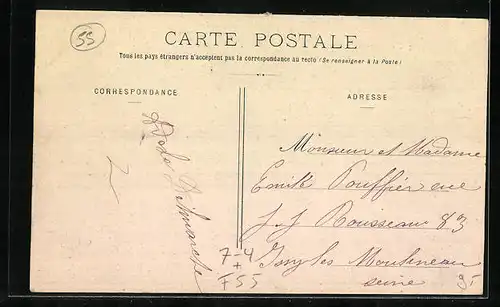 55
CARTE POSTALE
Tous les pays étrangers n'acceptent pas la correspondance au recto (Se renseigner à la Poste)
CORRESPONDANCE
ADRESSE
Monsieur et Madame
Emile Pouffier rue
J-J Rousseau 83
Issy les Moulineau
seine
7-4
+
F55
95